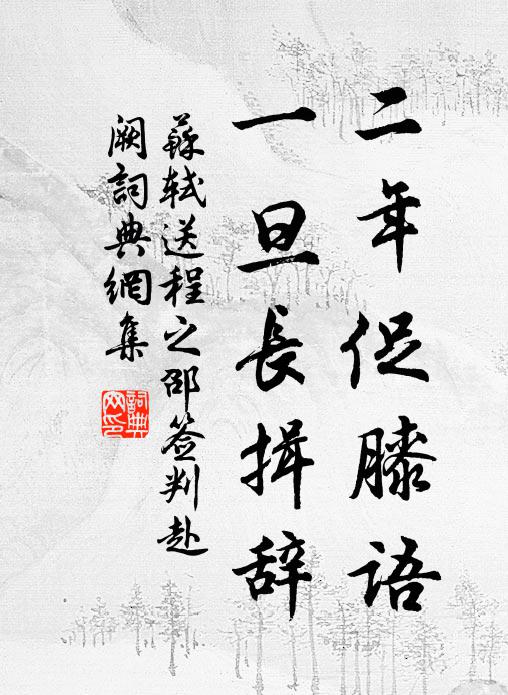 二年促膝语
一旦長揖辞
蘇軾送程之邵签判赴
阙詞典網集
詞典
网印